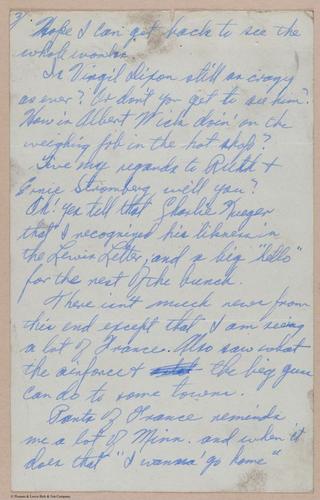 3/ Hope I can get back to see the
whole works.
Is Virgil Dixon still as crazy
as ever? Or don't you get to see him?
How is Albert doin' on the
weighing job in the hot shop?
Give my regards to Ruth +
Ernie Stromberg, will you?
Oh! Yes tell that Charlie Kueger
that I recognized his likeness in
the Lewis Letter, and a big "hello"
for the rest of the bunch.
There isn't much news from
this end except that I am seeing
a lot of France. Also saw what
the airforce + the big guns
can do to some towns.
Parts of France reminds
me a lot of Minn. and when it
does that "I wanna' go home"